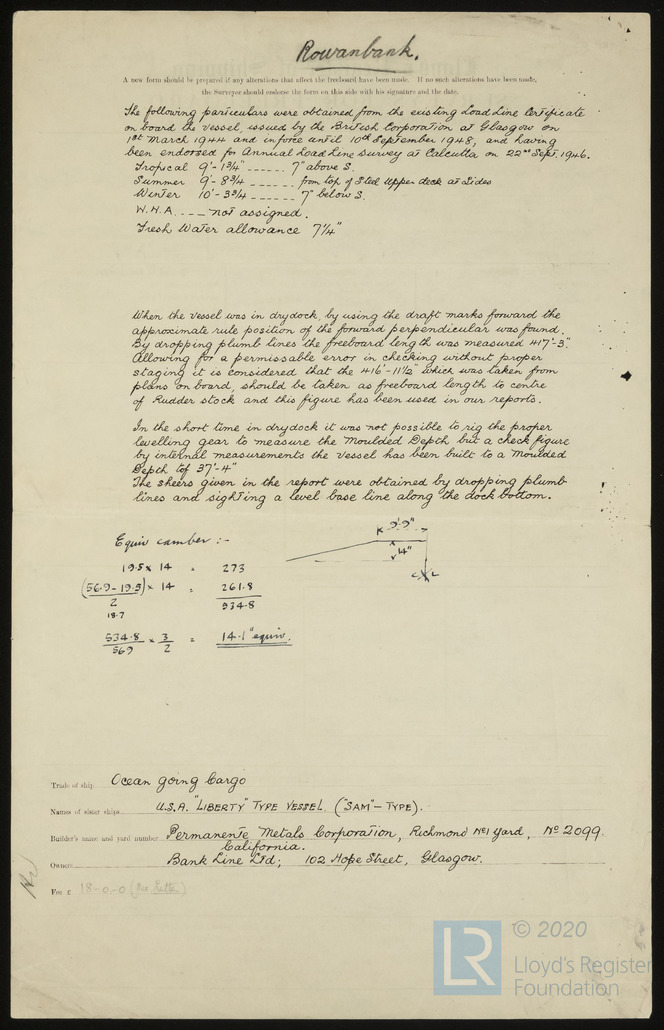 Rowanbank.
A new form should be prepared if any alterations that affect the freeboard have been made. If no such alterations have been made,
the Surveyor should endorse the form on this side with his signature and the date.
The following particulars were obtained from the existing Load Line Certificate
on board the vessel, issued by the British Corporation at Glasgow on
1st March 1944 and inforce until 10th September 1948, and having
been endorsed for Annual Load Line survey at Calcutta on 22nd Sept. 1946.
Tropical 9'-1¾" ------ 7" above S.
Summer 9'-8¾ ------ from top of Steel Upper deck at Sides
Winter 10'-3¾ ------ 7" below S.
W.N.A. ---- not assigned.
Fresh Water allowance 7¼"
When the vessel was in drydock, by using the draft marks forward the
approximate rule position of the forward perpendicular was found.
By dropping plumb lines the freeboard length was measured 417'-3".
Allowing for a permissable error in checking without proper
staging it is considered that the 416'-11½" which was taken from
plans on board, should be taken as freeboard length to centre
of Rudder stock and this figure has been used in our reports.
In the short time in drydock it was not possible to rig the proper
levelling gear to measure the Moulded Depth but a check figure
by internal measurements the vessel has been built to a Moulded
Depth of 37'-4"
The sheers given in the report were obtained by dropping plumb
lines and sighting a level base line along the dock bottom.
9'-9"
14"
C L
Equiv camber :-
19.5 x 14 = 273
(56.9-19.5) x 14 = 261.8
2
18.7
534.8
534.8 x 3 = 14.1" equiv.
56.9 2
Trade of ship Ocean going Cargo
Names of sister ships U.S.A. "LIBERTY" TYPE VESSEL. ("SAM"-TYPE).
Builder's name and yard number Permanente Metals Corporation, Richmond No1 Yard, No 2099
California.
Owners Bank Line Ltd; 102 Hope Street, Glasgow.
Fee £ 18-0-0 (See Letter)
LR
© 2020
Lloyd's Register
Foundation